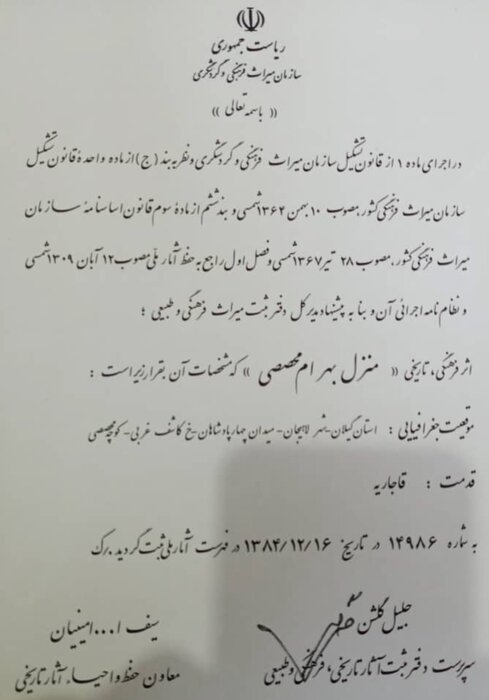 ریاست جمهوری
سازمان میراث فرهنگی و گردشگری
« باسمه تعالی »
در اجرای ماده ۱ از قانون تشکیل سازمان میراث فرهنگی و گردشگری و نظر به بند (ج) از ماده واحدهٔ قانون تشکیل
سازمان میراث فرهنگی کشور، مصوب ۱۰ بهمن ۱۳۶۴ شمسی و بند ششم از مادهٔ سوم قانون اساسنامه سازمان
میراث فرهنگی کشور، مصوب ۲۸ تیر ۱۳۶۷ شمسی و فصل اول راجع به حفظ آثار ملّی مصوب ۱۲ آبان ۱۳۰۹ شمسی
و نظام نامه اجرائی آن و بنا به پیشنهاد مدیر کل دفتر ثبت میراث فرهنگی و طبیعی ؛
اثر فرهنگی، تاریخی « منزل بهرام محصصی » که مشخصات آن بقرار زیر است :
موقعیت جغرافیایی : استان گیلان-شهر لاهیجان- میدان چهار پادشاهان-خ کاشف غربی- کوچه محصصی
قدمت : قاجاریه
به شماره ۱۴۹۸۶ در تاریخ ۱۳۸۴/۱۲/۱۶ در فهرست آثار ملی ثبت گردید. برک
جلیل گلشن
سرپرست دفتر ثبت آثار تاریخی، فرهنگی و طبیعی
سیف ا... امینیان
معاون حفظ و احیاء آثار تاریخی